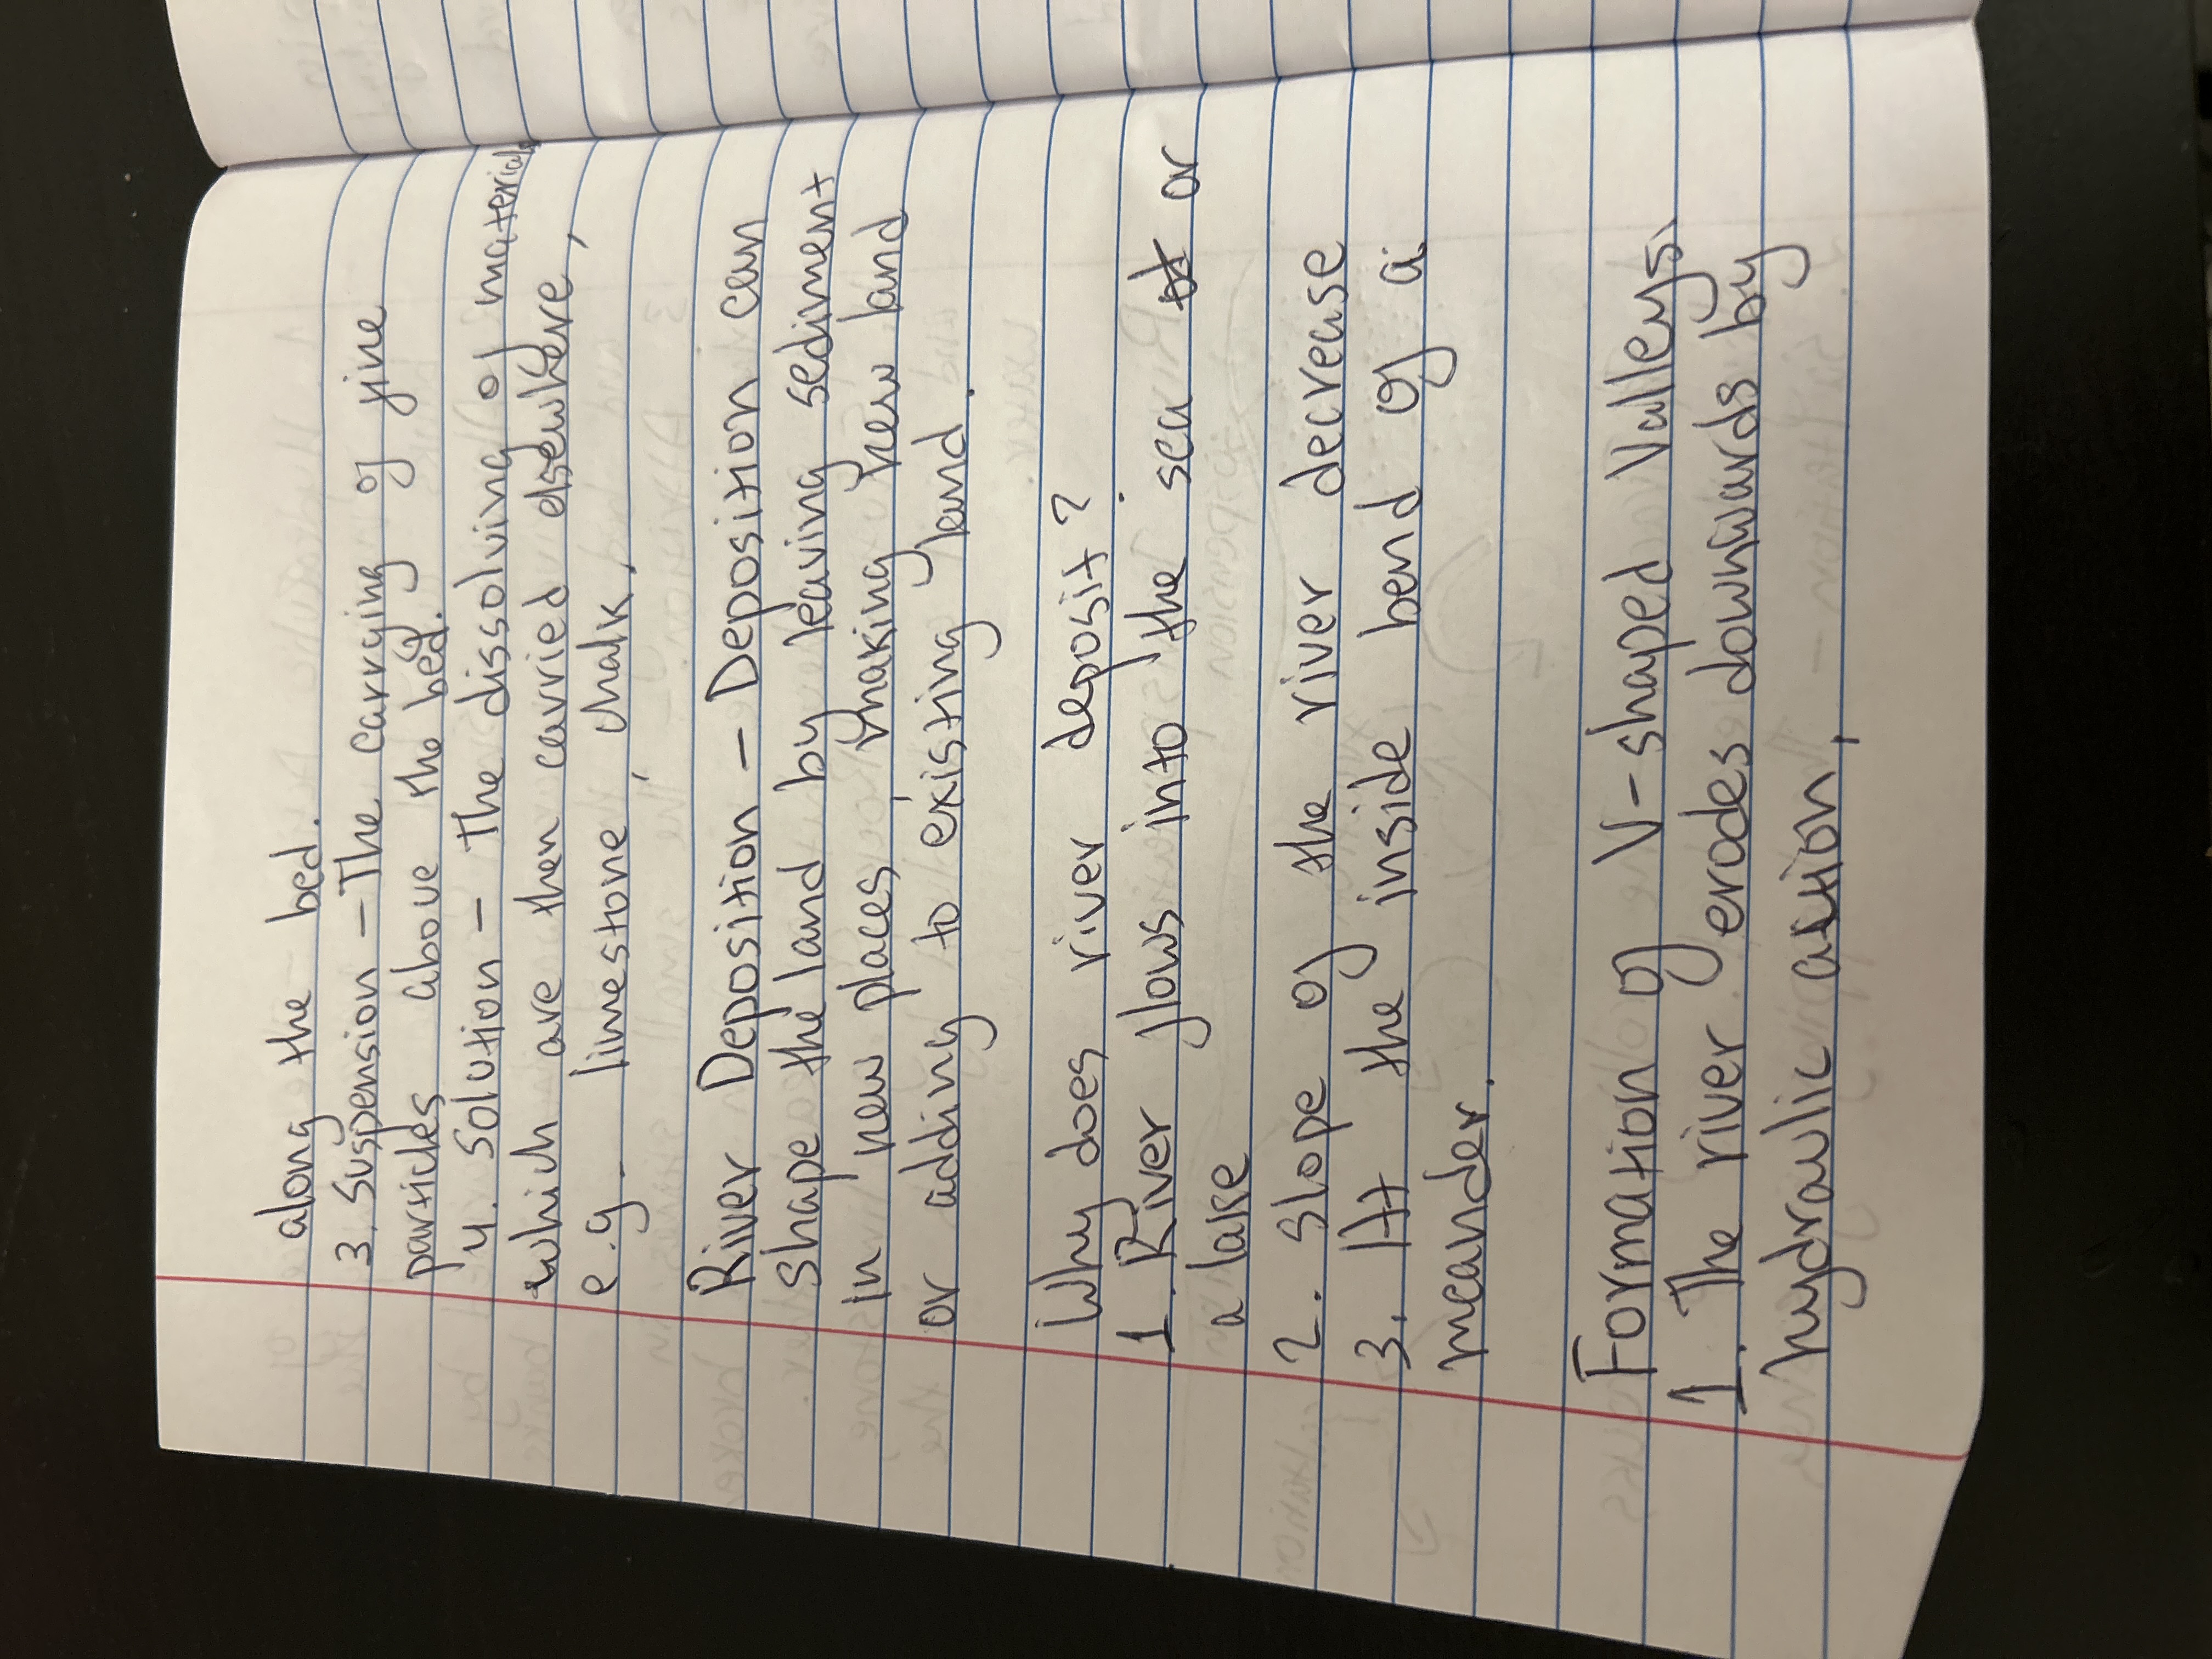 along the bed.
3. Suspension - The carrying of fine
particles above the bed.
4. Solution - The dissolving of materials
which are then carried elsewhere,
e.g. limestone, chalk,
River Deposition - Deposition can
shape the land by leaving sediment
in new places, making new land
or adding to existing land.
Why does river deposit?
1. River flows into the sea or
a lake
2. Slope of the river decrease
3. At the inside bend of a
meander.
Formation of V-shaped Valleys.
1. The river erodes downwards by
hydraulic action,